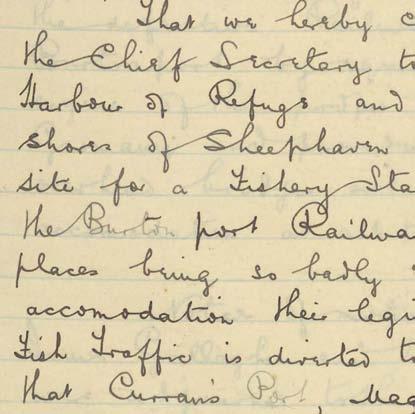 That we hereby c
the Chief Secretary to
Harbour of Refuge and
shores of Sheephaven
site for a Fishery Sta
the Burton port Railwa
places being so badly
accomodation their legi
Fish Traffic is diverted to
that Curran's Port, Mag